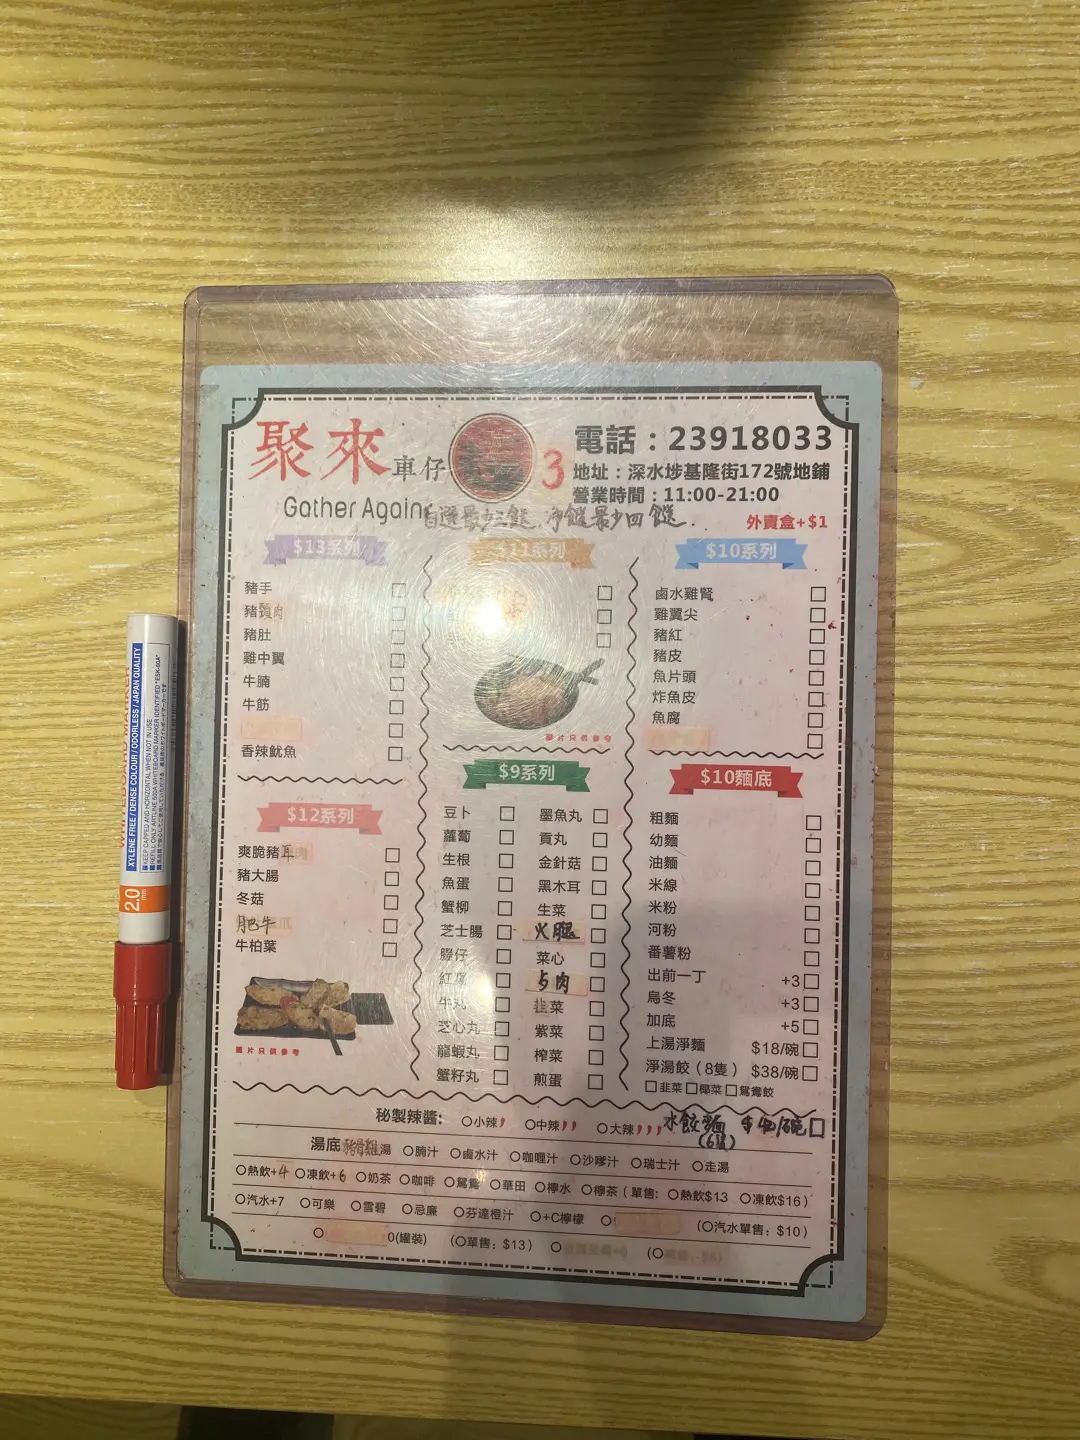 聚來車仔 3
Gather Again
電話：23918033
地址：深水埗基隆街172號地鋪
營業時間：11:00-21:00
自選最少三餸.淨餸最少四餸.
外賣盒+$1
$13系列
豬手
豬頸肉
豬肚
雞中翼
牛腩
牛筋
香辣魷魚
$12系列
爽脆豬耳
豬大腸
冬菇
肥牛
牛柏葉
圖片只供參考
$11系列
圖片只供參考
$9系列
豆卜
蘿蔔
生根
魚蛋
蟹柳
芝士腸
膶仔
紅腸
牛丸
芝心丸
龍蝦丸
蟹籽丸
墨魚丸
貢丸
金針菇
黑木耳
生菜
火腿
菜心
韭菜
紫菜
榨菜
煎蛋
$10系列
鹵水雞腎
雞翼尖
豬紅
豬皮
魚片頭
炸魚皮
魚腐
$10麵底
粗麵
幼麵
油麵
米線
米粉
河粉
番薯粉
出前一丁 +3
烏冬 +3
加底 +5
上湯淨麵 $18/碗
淨湯餃（8隻） $38/碗
韭菜 椰菜 鴛鴦餃
秘製辣醬: 小辣 中辣 大辣
水餃麵
湯底 豬骨雞湯 腩汁 鹵水汁 咖喱汁 沙嗲汁 瑞士汁 走湯
熱飲+4 凍飲+6 奶茶 咖啡 鴛鴦 華田 檸水 檸茶（單售: 熱飲$13 凍飲$16）
汽水+7 可樂 雪碧 忌廉 芬達橙汁 +C檸檬 （汽水單售：$10）
0(罐裝) （單售：$13）
WHITEBOARD MARKER
XYLENE FREE / DENSE COLOUR / ODORLESS / JAPAN QUALITY
KEEP CAPPED AND HORIZONTAL WHEN NOT IN USE
2.0 mm